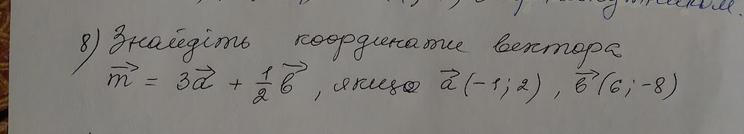 8) Знайдіть координати вектора
m⃗ = 3a⃗ + 1/2 b⃗, якщо a⃗ (-1; 2), b⃗ (6; -8)